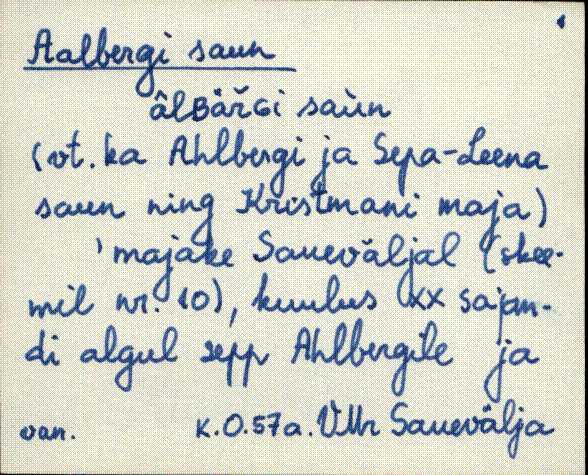 Aalbergi saun
âlBäřGi saùn
(vt. ka Ahlbergi ja Sepa-Leena
saun ning Kristmani maja)
'majake Saueväljal (skee-
mil nr. 10), kuulus XX sajan-
di algul sepp Ahlbergile ja
van. K.O.57a. VMr Sauevälja